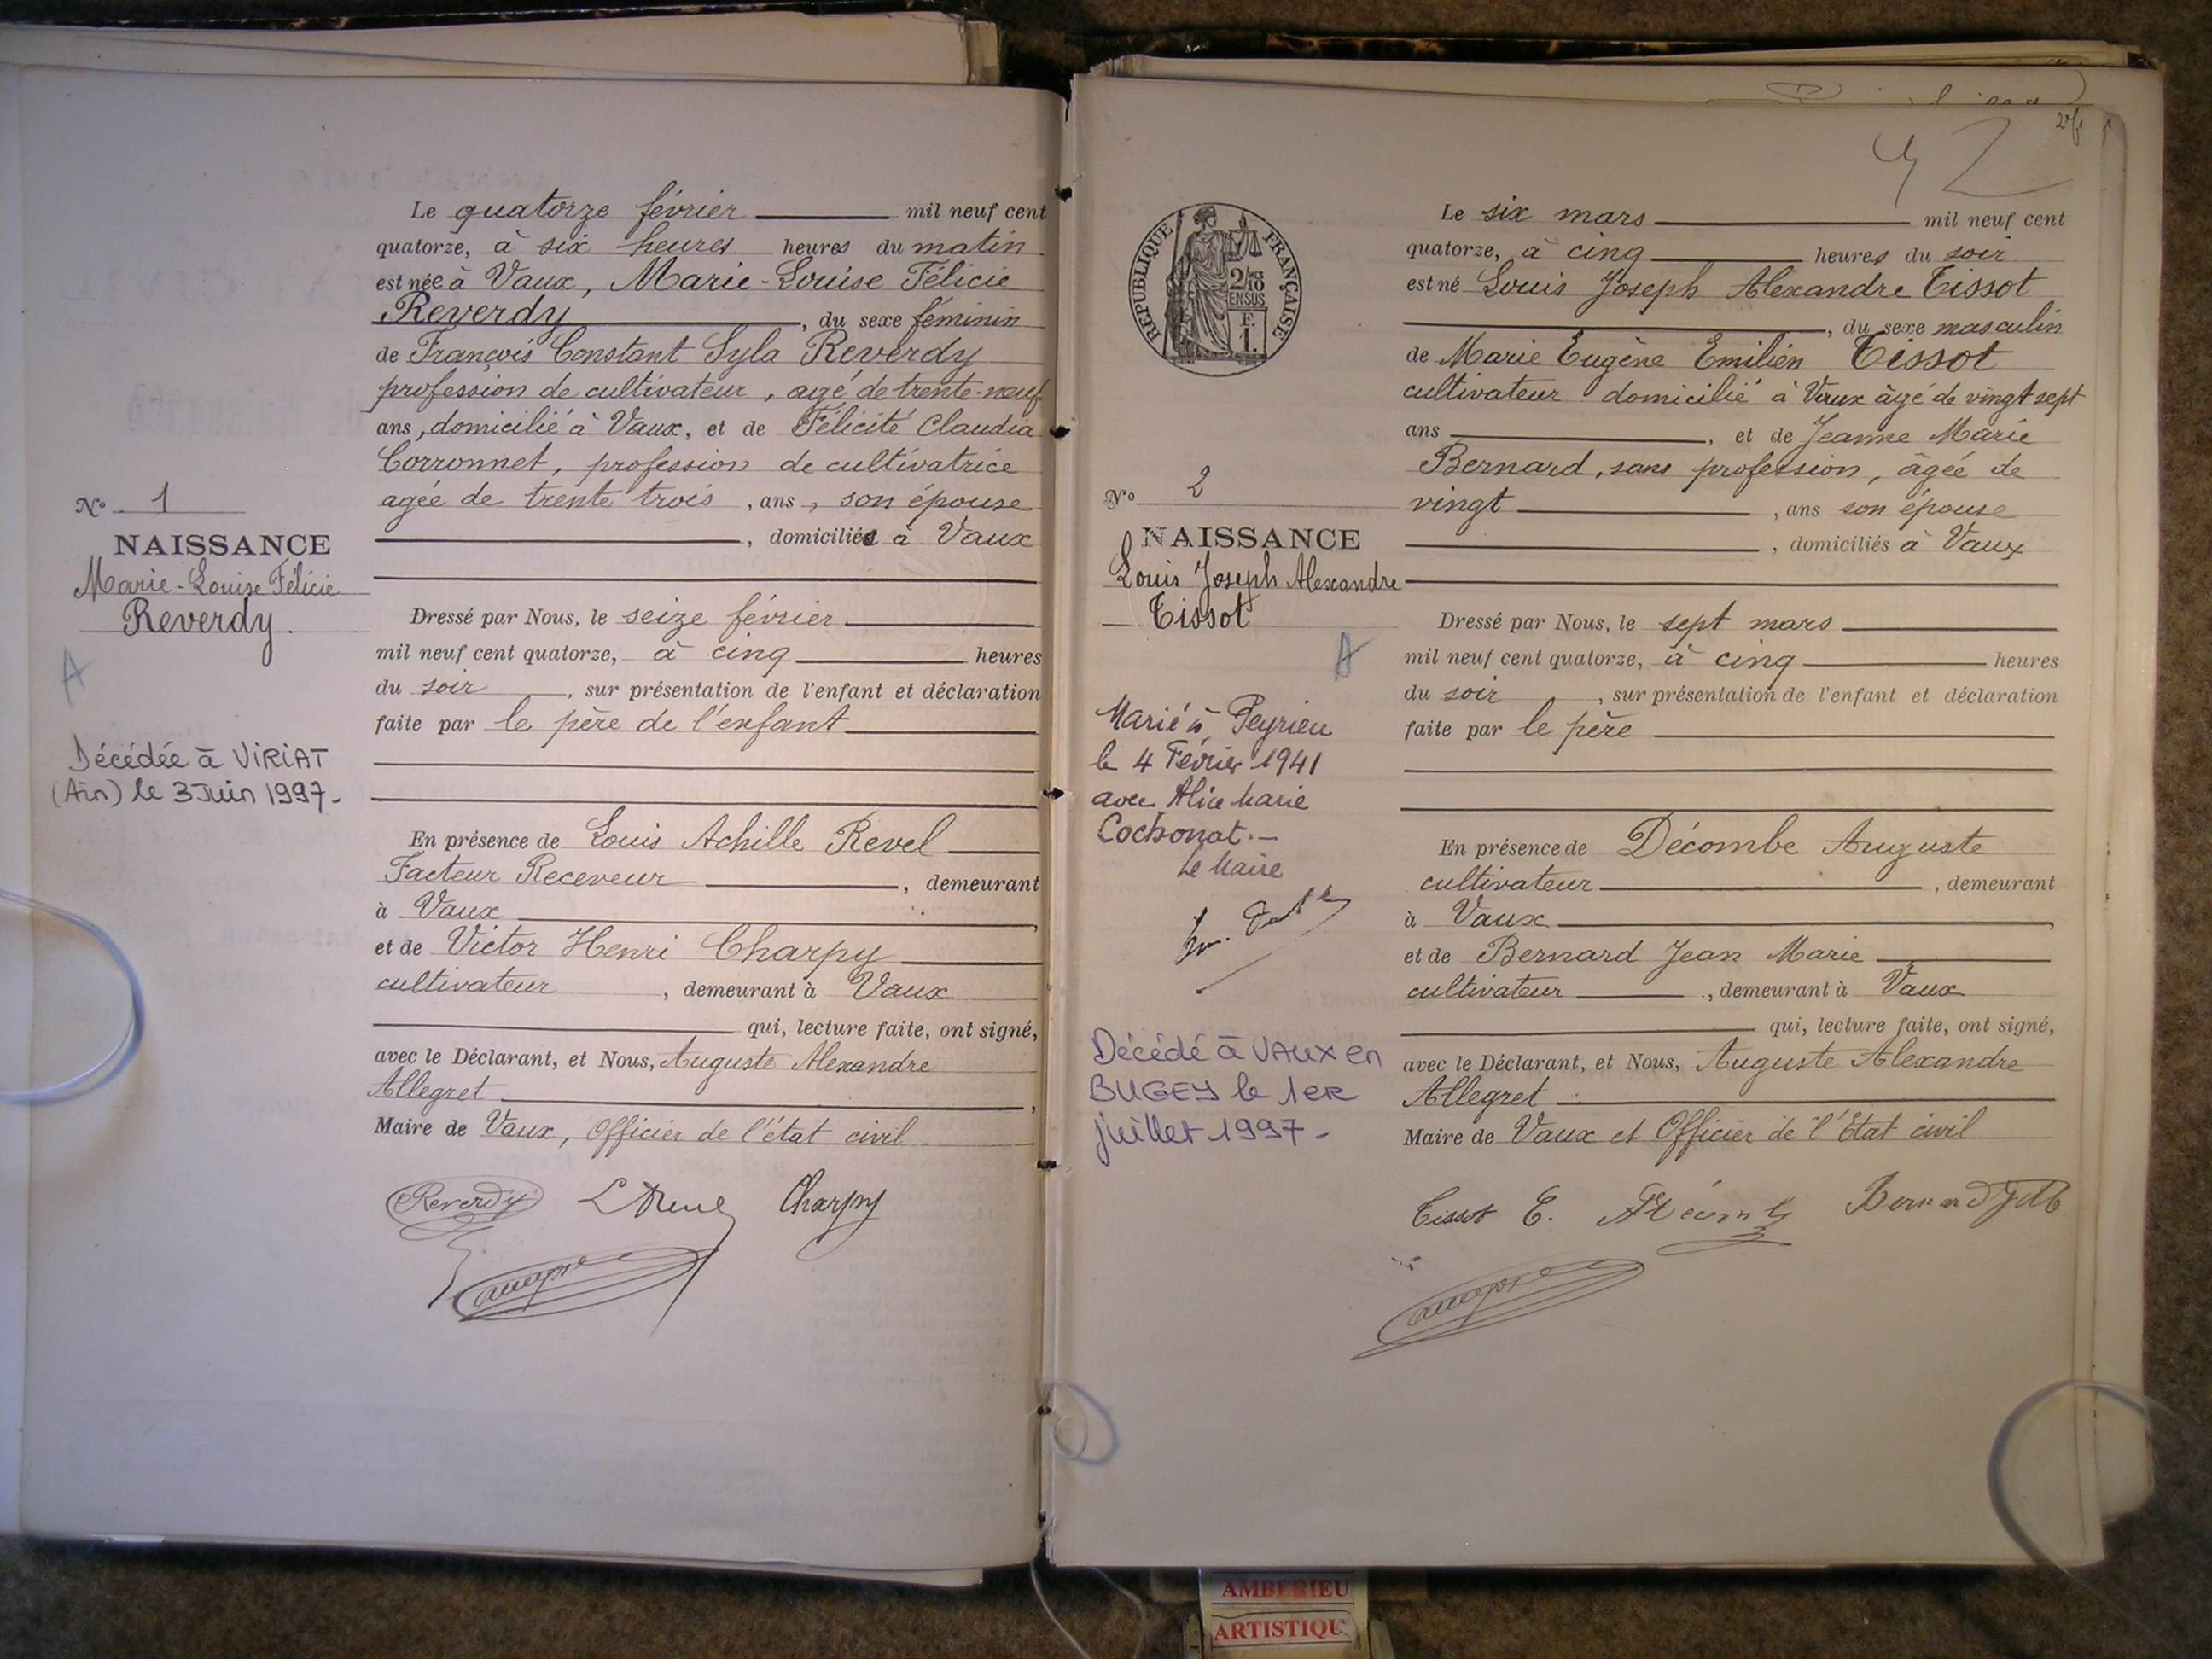 Le quatorze février mil neuf cent
quatorze, à six heures heures du matin
est née à Vaux, Marie-Louise Félicie
Reverdy, du sexe féminin
de François Constant Syla Reverdy
profession de cultivateur, agé de trente-neuf
ans, domicilié à Vaux, et de Félicité Claudia
Corronnet, profession de cultivatrice
agée de trente trois, ans, son épouse
, domiciliés à Vaux
No 1
NAISSANCE
Marie-Louise Félicie
Reverdy.
A
Décédée à VIRIAT
(Ain) le 3 Juin 1997-
Dressé par Nous, le seize février
mil neuf cent quatorze, à cinq heures
du soir, sur présentation de l'enfant et déclaration
faite par le père de l'enfant
En présence de Louis Achille Revel
Facteur Receveur, demeurant
à Vaux
et de Victor Henri Charpy
cultivateur, demeurant à Vaux
qui, lecture faite, ont signé,
avec le Déclarant, et Nous, Auguste Alexandre
Allegret,
Maire de Vaux, Officier de l'état civil
Reverdy Charpy
42
REPUBLIQUE FRANÇAISE
2/10
EN SUS
F.
1.
Le six mars mil neuf cent
quatorze, à cinq heures du soir
est né Louis Joseph Alexandre Tissot
, du sexe masculin
de Marie Eugène Emilien Tissot
cultivateur domicilié à Vaux âgé de vingt sept
ans, et de Jeanne Marie
Bernard, sans profession, âgée de
vingt, ans son épouse
, domiciliés à Vaux
No 2
NAISSANCE
Louis Joseph Alexandre
Tissot
A
Marié à Peyrieu
le 4 Février 1941
avec Alice Marie
Cochonat.-
Le Maire
Décédé à VAUX en
BUGEY le 1ER
juillet 1997-
Dressé par Nous, le sept mars
mil neuf cent quatorze, à cinq heures
du soir, sur présentation de l'enfant et déclaration
faite par le père
En présence de Décombe Auguste
cultivateur, demeurant
à Vaux,
et de Bernard Jean Marie
cultivateur, demeurant à Vaux
qui, lecture faite, ont signé,
avec le Déclarant, et Nous, Auguste Alexandre
Allegret
Maire de Vaux et Officier de l'Etat civil
Tissot E. Bernard JM
AMBERIEU
ARTISTIQU